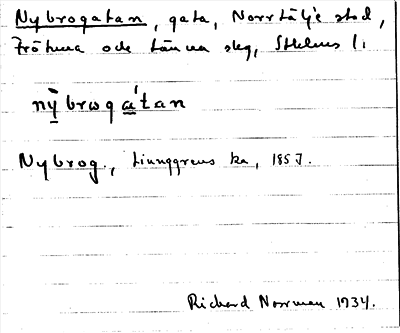 Nybrogatan, gata, Norrtälje stad,
Frötuna och Länna slg, Sthlms l.
nỳbrωgá̱tan
Nybrog., Ljunggrens ka, 1857.
Richard Norrman 1934.